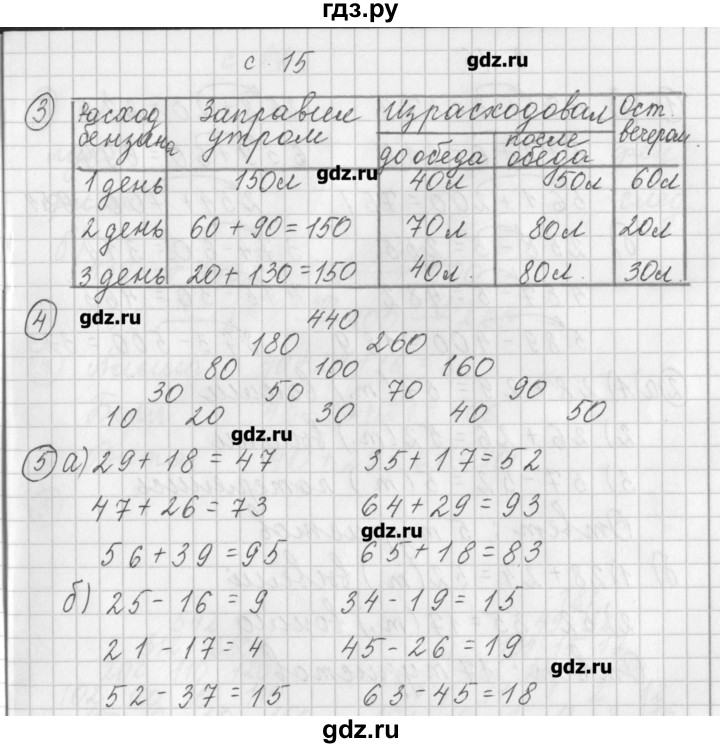 гдз.ру
с 15
gdz.ru
3 Расход бензина Заправили утром Израсходовал Ост. вечером
до обеда после обеда
gdz.ru
1 день 150л 40л 50л 60л
2 день 60 + 90 = 150 70л 80л 20л
3 день 20 + 130 = 150 40л. 80л. 30л.
4 gdz.ru 440
180 260
80 100 160
30 50 70 90
10 20 30 40 50
gdz.ru
5 а) 29 + 18 = 47 35 + 17 = 52
47 + 26 = 73 64 + 29 = 93
gdz.ru
56 + 39 = 95 65 + 18 = 83
б) 25 - 16 = 9 34 - 19 = 15
21 - 17 = 4 45 - 26 = 19
gdz.ru
52 - 37 = 15 63 - 45 = 18
gdz.ru